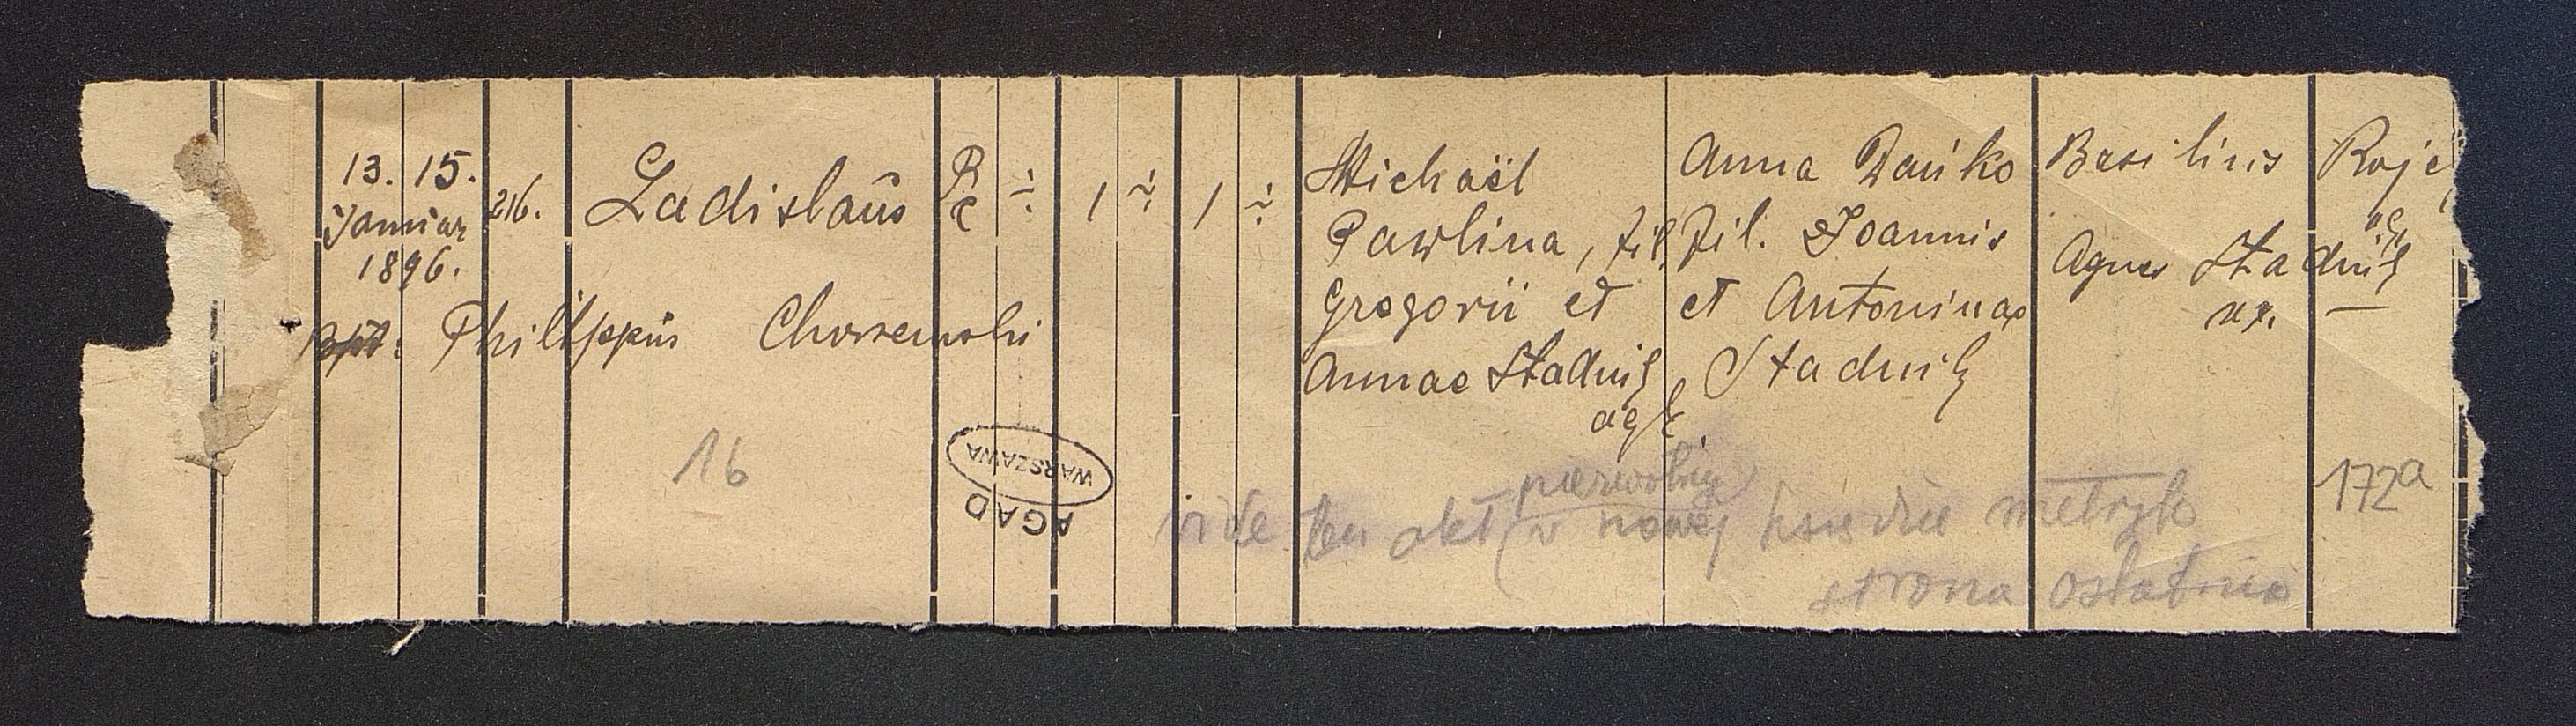 13. 15.
Januar
1896.
216.
Ladislaus
Rc ÷ 1 ÷ 1 ÷
Bpt: Philippus
Michaël
Pawlina, fil.
Gregorii et
Annae Stadnik
agr.
Anna Dańko
fil. Joannis
et Antoninae
Stadnik
Basilius
Agnes Stadnik
ux. —
16
AGAD
WARSZAWA
172a
pierwotny
vide ten akt w nowej księdze metryk
strona ostatnia